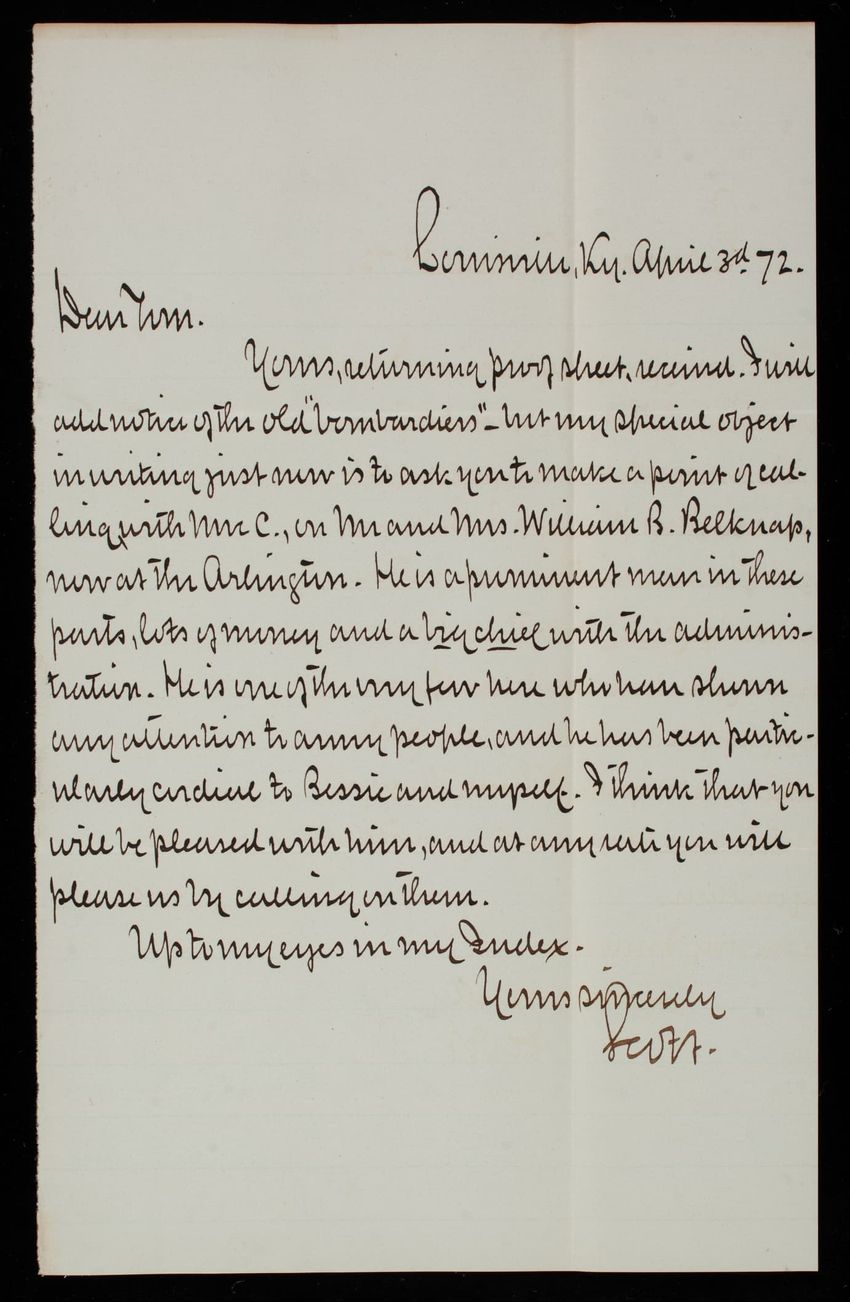 Louisville, Ky. April 3d. 72.
Dear Tom.
Yours, returning proof sheet, received. I will
add notice of the old "bombardiers" – but my special object
in writing just now is to ask you to make a point of cal-
ling, with Mrs C., on Mr and Mrs. William B. Belknap,
now at the Arlington. He is a prominent man in these
parts, lots of money and a big chief with the adminis-
tration. He is one of the very few here who have shown
any attention to army people, and he has been partic-
ularly cordial to Bessie and myself. I think that you
will be pleased with him, and at any rate you will
please us by calling on them.
Up to my eyes in my Index.
Yours sincerely
Scott.